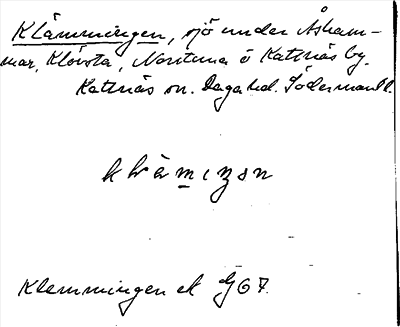 Klämmingen, sjö under Åsham-
mar, Klövsta, Norrtuna o Kattnäs by.
Kattnäs sn. Daga hd. Södermanl.
Klemmingen ek GjG7